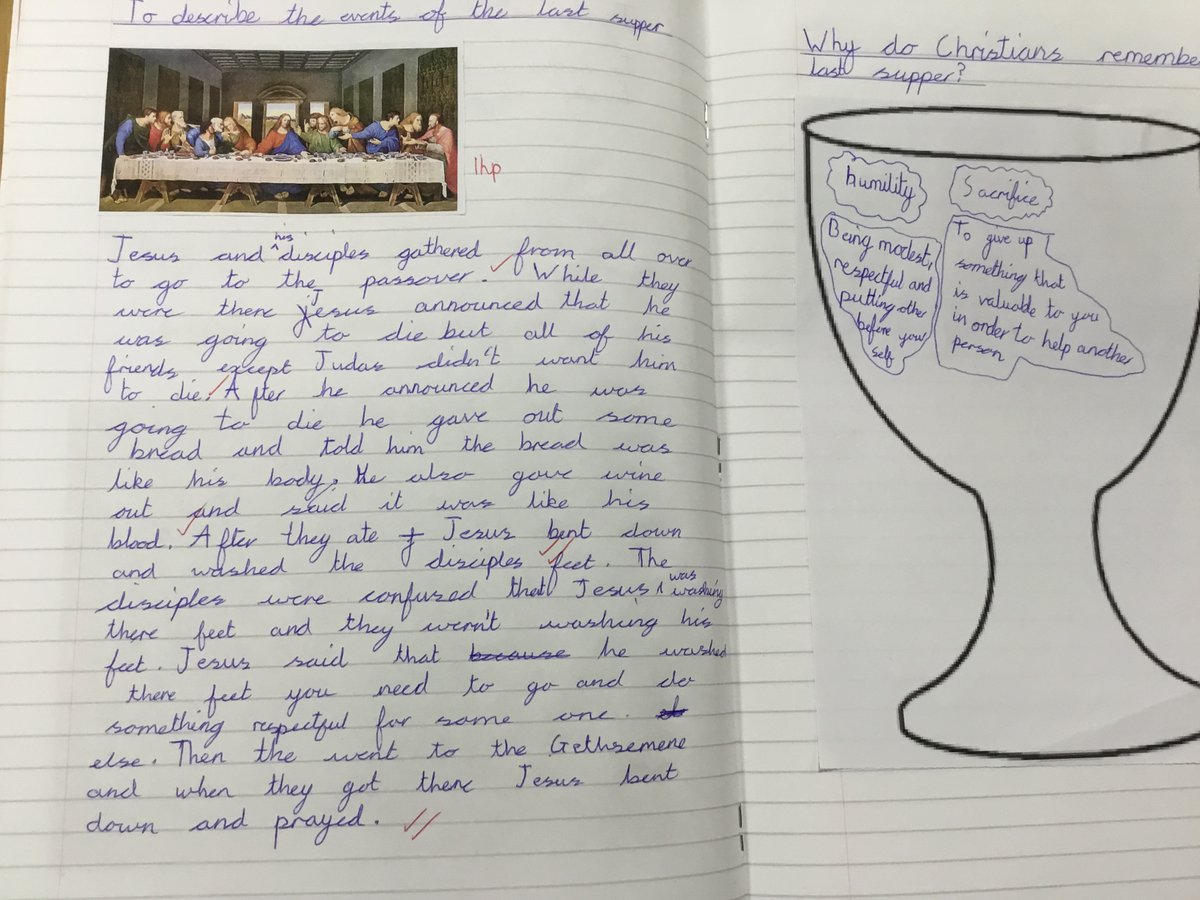 To describe the events of the last supper
1hp
Jesus and his disciples gathered from all over
to go to the passover. While they
were there Jesus announced that he
was going to die but all of his
friends except Judas didn't want him
to die. After he announced he was
going to die he gave out some
bread and told him the bread was
like his body. He also gave wine
out and said it was like his
blood. After they ate Jesus bent down
and washed the disciples feet. The
disciples were confused that Jesus was washing
there feet and they wern't washing his
feet. Jesus said that because he washed
there feet you need to go and do
something respectful for some one.
else. Then the went to the Gethsemene
and when they got there Jesus bent
down and prayed.
Why do Christians remembe
last supper?
humility
Being modest,
respectful and
putting other
before your
self
Sacrifice
To give up
something that
is valuable to you
in order to help another
person